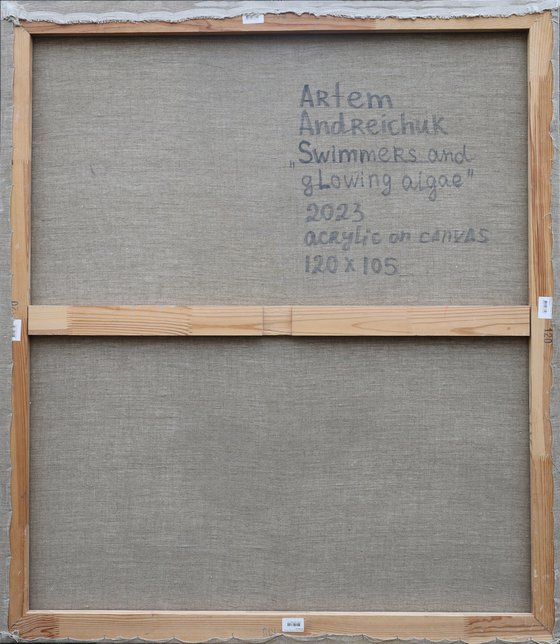 Artem
Andreichuk
„Swimmers and
glowing algae"
2023
acrylic on canvas
120 x 105
120